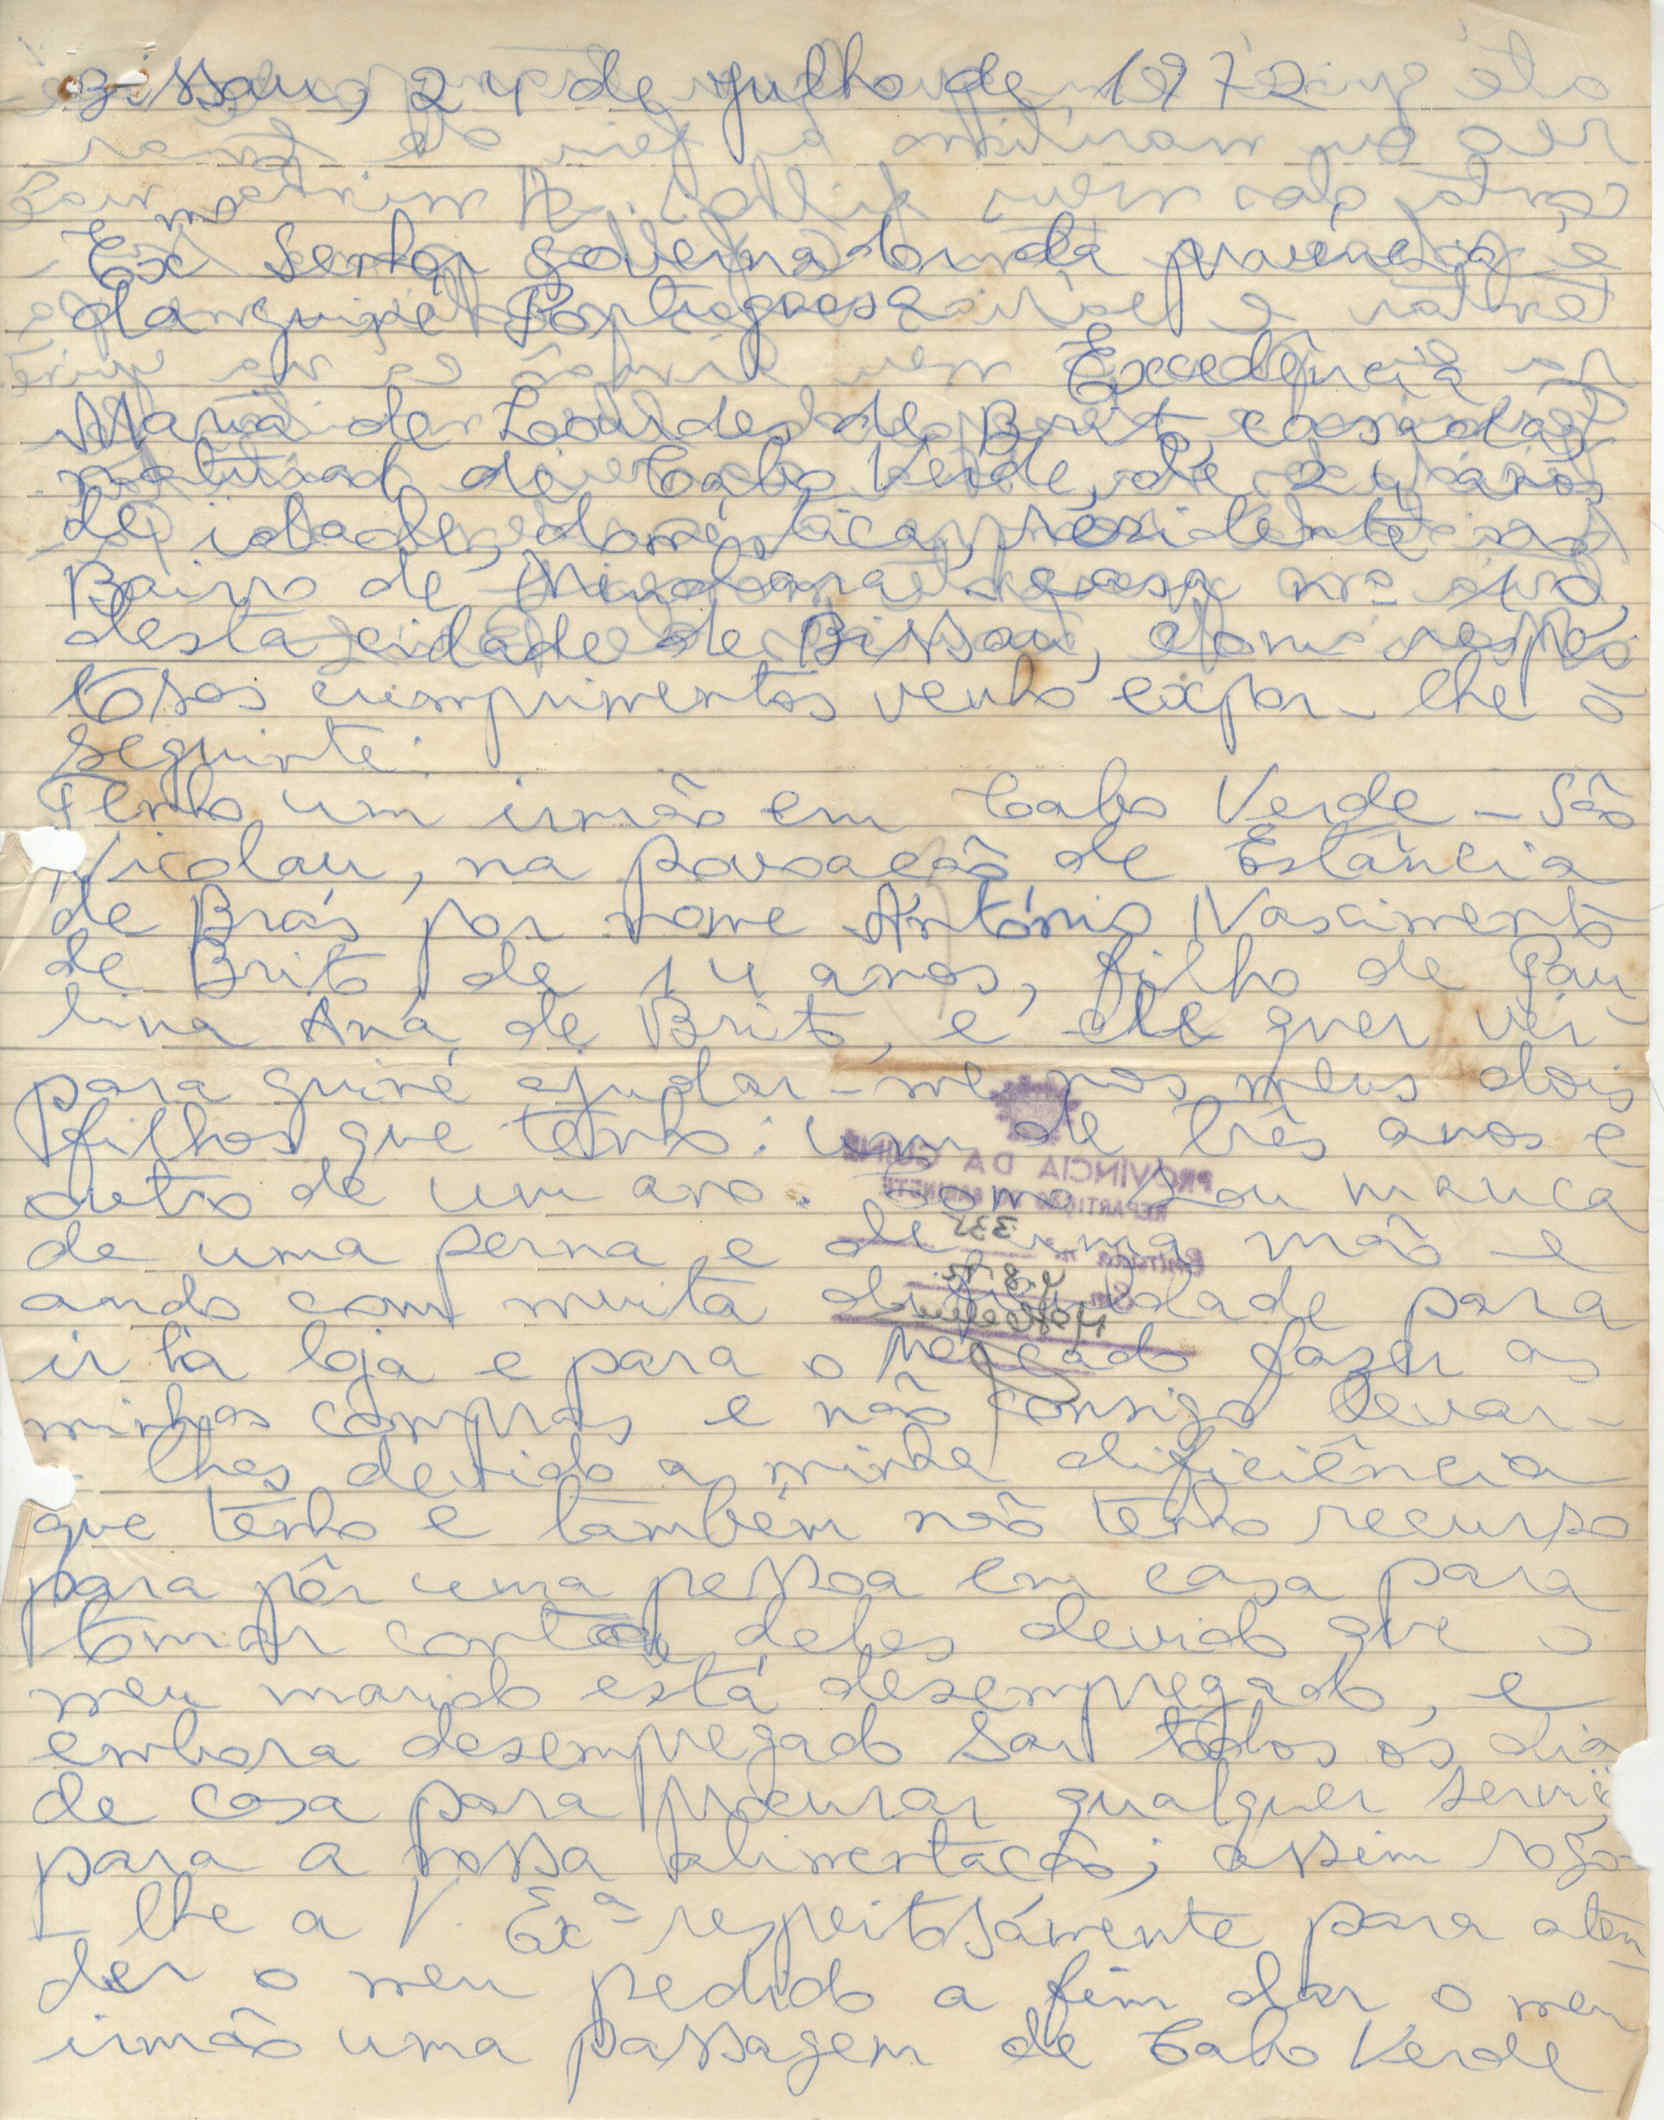 Bissau, 24 de Julho de 1972
Exmo Senhor governador da provéncia
da guiné Portuguesa
Excedência
Maria de Lourdes de Brit, casada,
natural de Cabo Verde, de 24 anos
de idade, doméstica, residente no
Bairro de casa nº
desta cidade de Bissau, com respeó
tosos cumprimentos venho expor-lhe o
seguinte:
Tenho um irmão em Cabo Verde - São
Nicolau, na povoacão de Estância
de Brás por nome António Nascimento
de Brito de 14 anos, filho de Pau
lina Ana de Brito, e ele quer vir
para guiné ajudar-me nos meus dois
filhos que tenho: um de três anos e
outro de um ano. Como sou manca
de uma perna e de uma mão e
ando com muita dificuldade para
ir há loja e para o mercado fazer as
minhas compras e não consigo levar-
lhes devido a minha dificiência
que tenho e também não tenho recurso
para pôr uma pessoa em casa para
tomar conta deles devido que o
meu marido está desempregado, e
embora desempregado sai todos os dia
de casa para procurar qualquer servic
para a nossa alimentacão; assim rogo-
- lhe a V. Exª respeitosámente para aten-
der o meu pedido a fim dar o meu
irmão uma passagem de Cabo Verde
PROVÍNCIA DA GUINÉ
REPARTIÇÃO GABINETE
Entrada nº 335